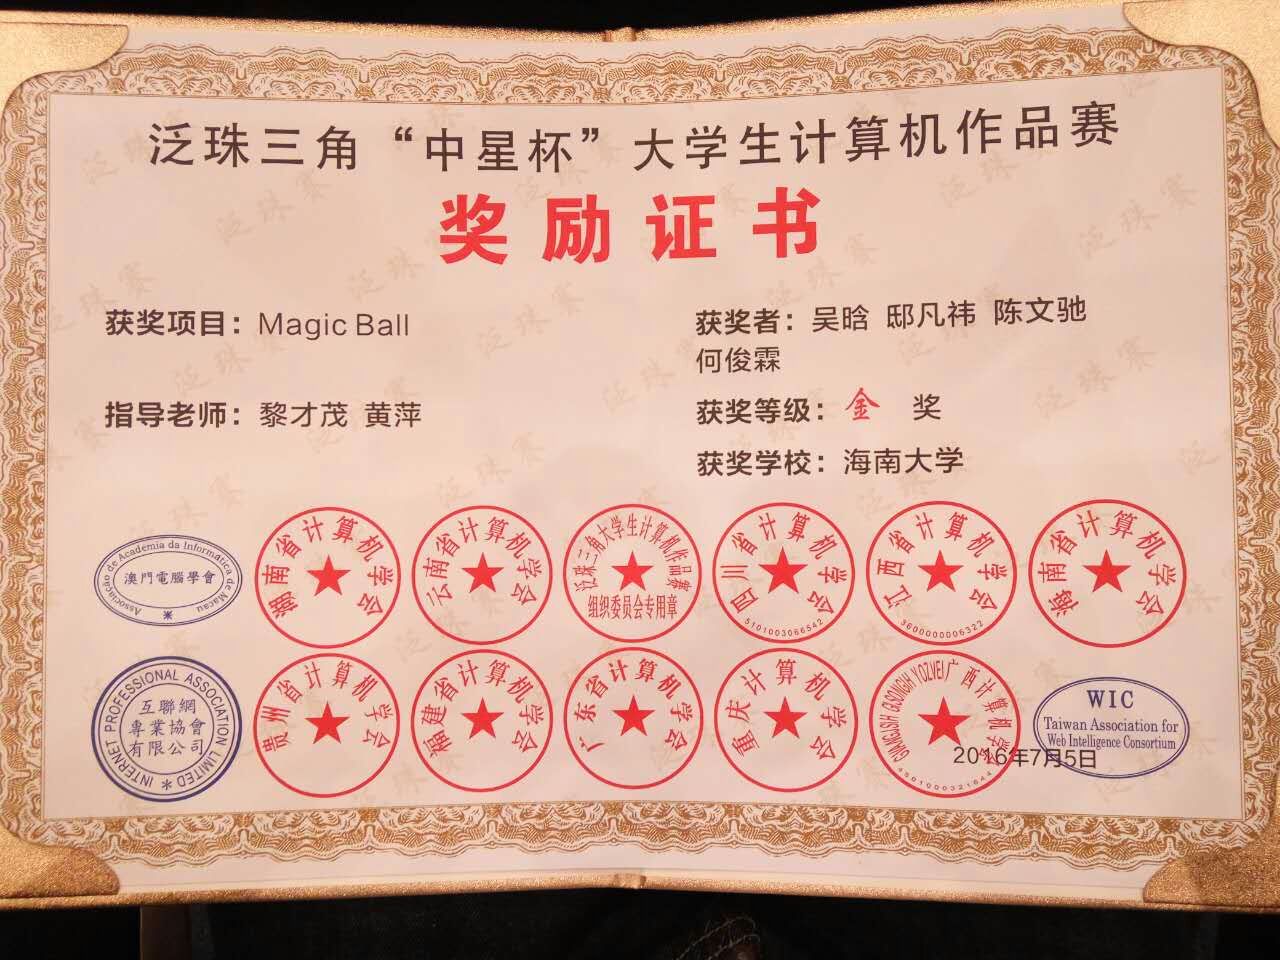 泛珠三角“中星杯”大学生计算机作品赛
奖励证书
获奖项目：Magic Ball
获奖者：吴晗 邸凡祎 陈文驰
何俊霖
指导老师：黎才茂 黄萍
获奖等级：金 奖
获奖学校：海南大学
Associação de Academia da Informática de Macau
澳門電腦學會
湖南省计算机学会
云南省计算机学会
泛珠三角大学生计算机作品赛
组织委员会专用章
四川省计算机学会
5101003066542
江西省计算机学会
3600000006322
海南省计算机学会
INTERNET PROFESSIONAL ASSOCIATION LIMITED
互聯網
專業協會
有限公司
贵州省计算机学会
福建省计算机学会
广东省计算机学会
重庆计算机学会
广西计算机学会
4501000321644
WIC
Taiwan Association for
Web Intelligence Consortium
2016年7月5日
泛珠赛